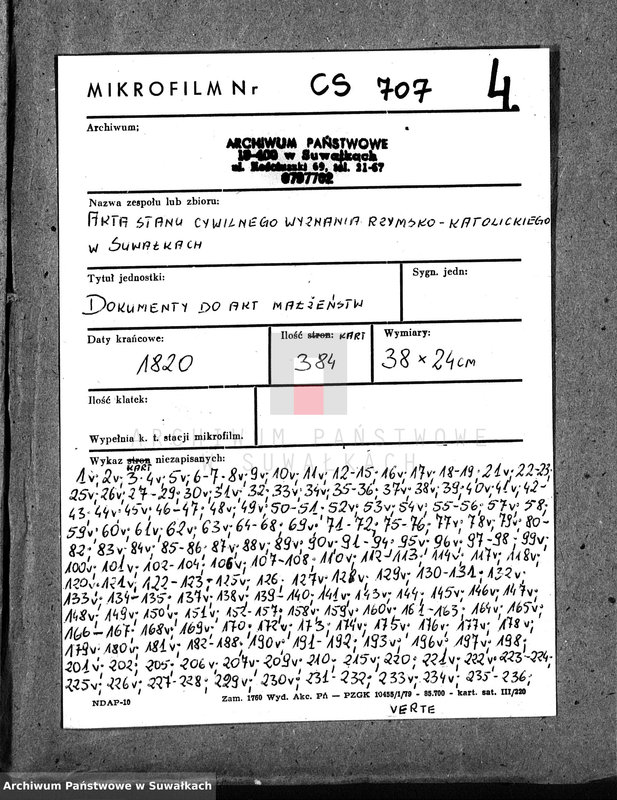 MIKROFILM Nr CS 707 4.
Archiwum;
ARCHIWUM PAŃSTWOWE
16-400 w Suwałkach
ul. Kościuszki 69, tel. 21-67
0797762
Nazwa zespołu lub zbioru:
AKTA STANU CYWILNEGO WYZNANIA RZYMSKO-KATOLICKIEGO
W SUWAŁKACH
Tytuł jednostki:
Sygn. jedn:
DOKUMENTY DO AKT MAŁŻEŃSTW
Daty krańcowe: Ilość stron: KART Wymiary:
1820 384 38 × 24 cm
Ilość klatek:
ARCHIWUM PAŃSTWOWE
W SUWAŁKACH
Wypełnia k. t. stacji mikrofilm.
Wykaz stron niezapisanych:
KART
1v; 2v; 3; 4v; 5v; 6-7; 8v; 9v; 10v; 11v; 12-15; 16v; 17v; 18-19; 21v; 22-23;
25v; 26v; 27-29; 30v; 31v; 32; 33v; 34v; 35-36; 37v; 38v; 39; 40v; 41v; 42-
43; 44v; 45v; 46-47; 48v; 49v; 50-51; 52v; 53v; 54v; 55-56; 57v; 58;
59v; 60v; 61v; 62v; 63v; 64-68; 69v; 71-72; 75-76; 77v; 78v; 79v; 80-
82; 83v; 84v; 85-86; 87v; 88v; 89v; 90v; 91-94; 95v; 96v; 97-98; 99v;
100v; 101v; 102-104; 106v; 107-108; 110v; 112-113; 114v; 117v; 118v;
120v; 121v; 122-123; 125v; 126; 127v; 128v; 129v; 130-131; 132v;
133v; 134-135; 137v; 138v; 139; 140; 141v; 143v; 144; 145v; 146v; 147v;
148v; 149v; 150v; 151v; 152-157; 158v; 159v; 160v; 161-163; 164v; 165v;
166-167; 168v; 169v; 170; 172v; 173; 174v; 175v; 176v; 177v; 178v;
179v; 180v; 181v; 182-188; 190v; 191-192; 193v; 196v; 197v; 198;
201v; 202; 205; 206v; 207v; 209v; 210; 215v; 220; 221v; 222v; 223-224;
225v; 226v; 227-228; 229v; 230v; 231-232; 233v; 234v; 235-236;
NDAP-10 Zam. 1760 Wyd. Akc. Pń — PZGK 10455/1/79 - 85.700 - kart. sat. III/220
VERTE
Archiwum Państwowe w Suwałkach